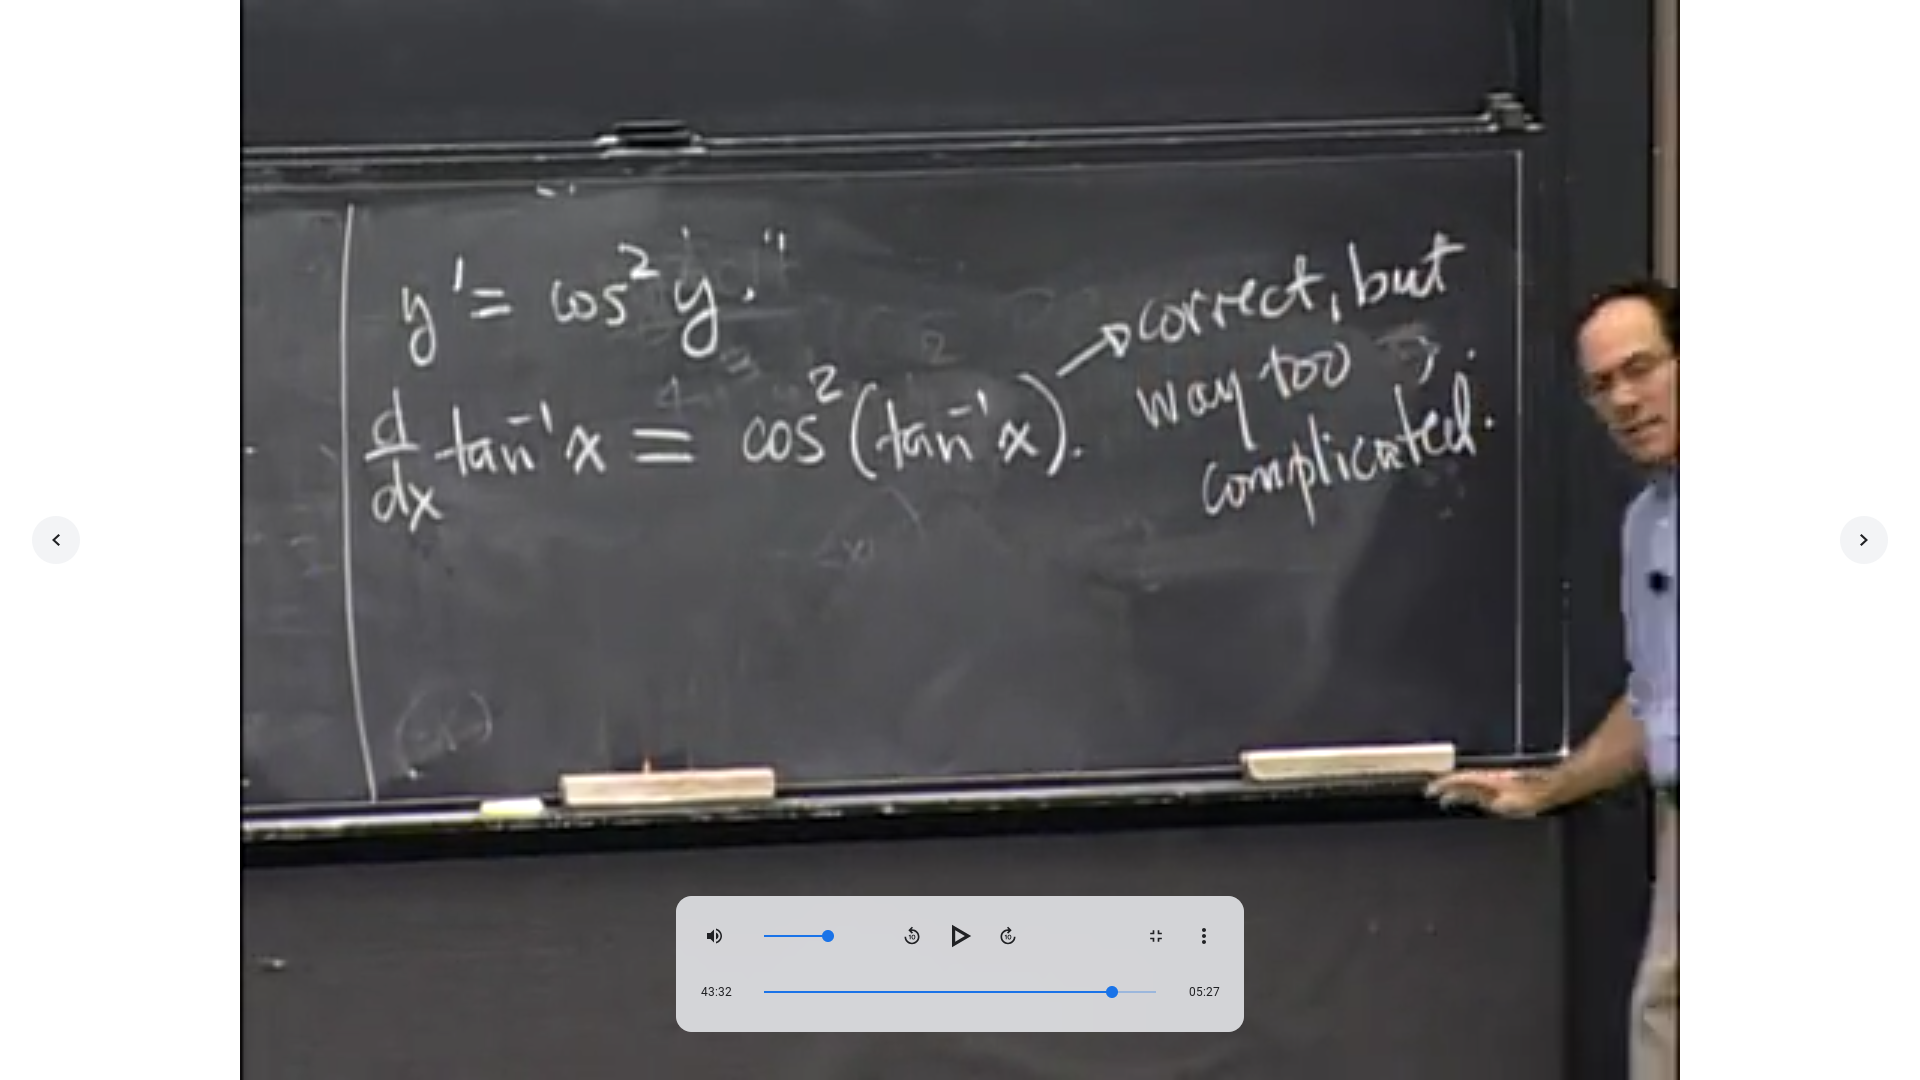 y' = cos² y.
d/dx tan⁻¹x = cos²(tan⁻¹x).
correct, but
way too
complicated.
10
10
43:32
05:27